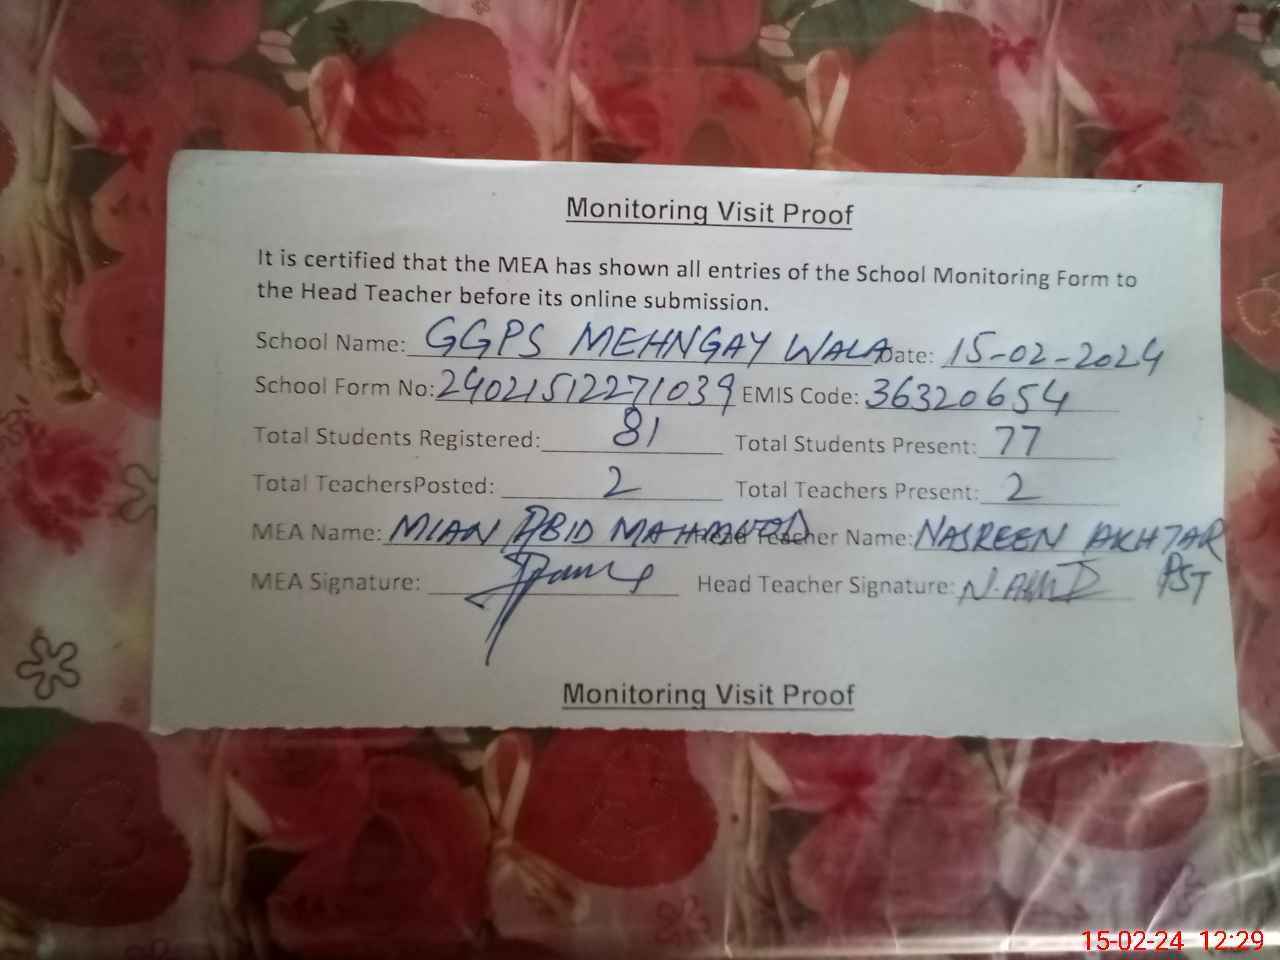 Monitoring Visit Proof
It is certified that the MEA has shown all entries of the School Monitoring Form to
the Head Teacher before its online submission.
School Name: GGPS MEHNGAY WALA Date: 15-02-2024
School Form No: 24021512271039 EMIS Code: 36320654
Total Students Registered: 81 Total Students Present: 77
Total TeachersPosted: 2 Total Teachers Present: 2
MEA Name: MIAN ABID MAHMOOD Head Teacher Name: NASREEN AKHTAR
MEA Signature: Head Teacher Signature: PST
Monitoring Visit Proof
15-02-24 12:29